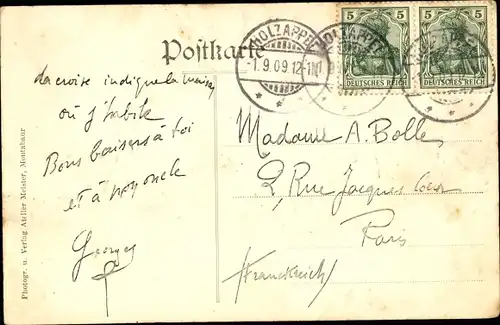 Postkarte
HOLZAPPEL
-1.9.09.12-1N
5 5
DEUTSCHES REICH
5 5
DEUTSCHES REICH
la croix indique la maison
où j'habite
Bons baisers à toi
et à mon oncle
Georges
Madame A. Bolle
2, Rue Jacques Coeur
Paris
(Frankreich)
Photogr. u. Verlag Atelier Meister, Montabaur